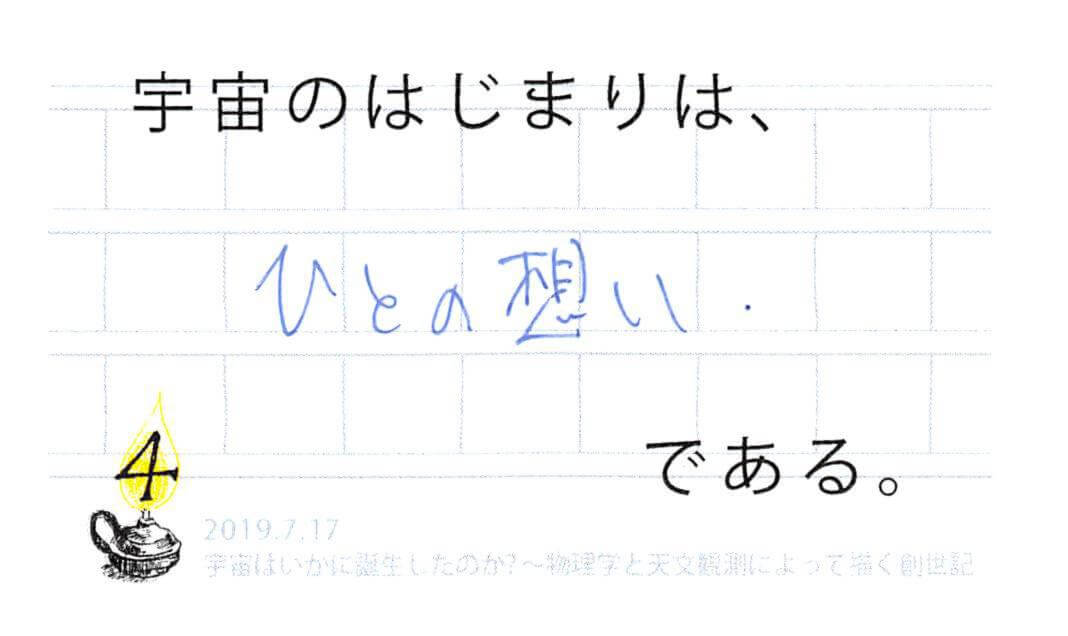 宇宙のはじまりは、
ひとの想い.
である。
4
2019.7.17
宇宙はいかに誕生したのか?~物理学と天文観測によって描く創世記